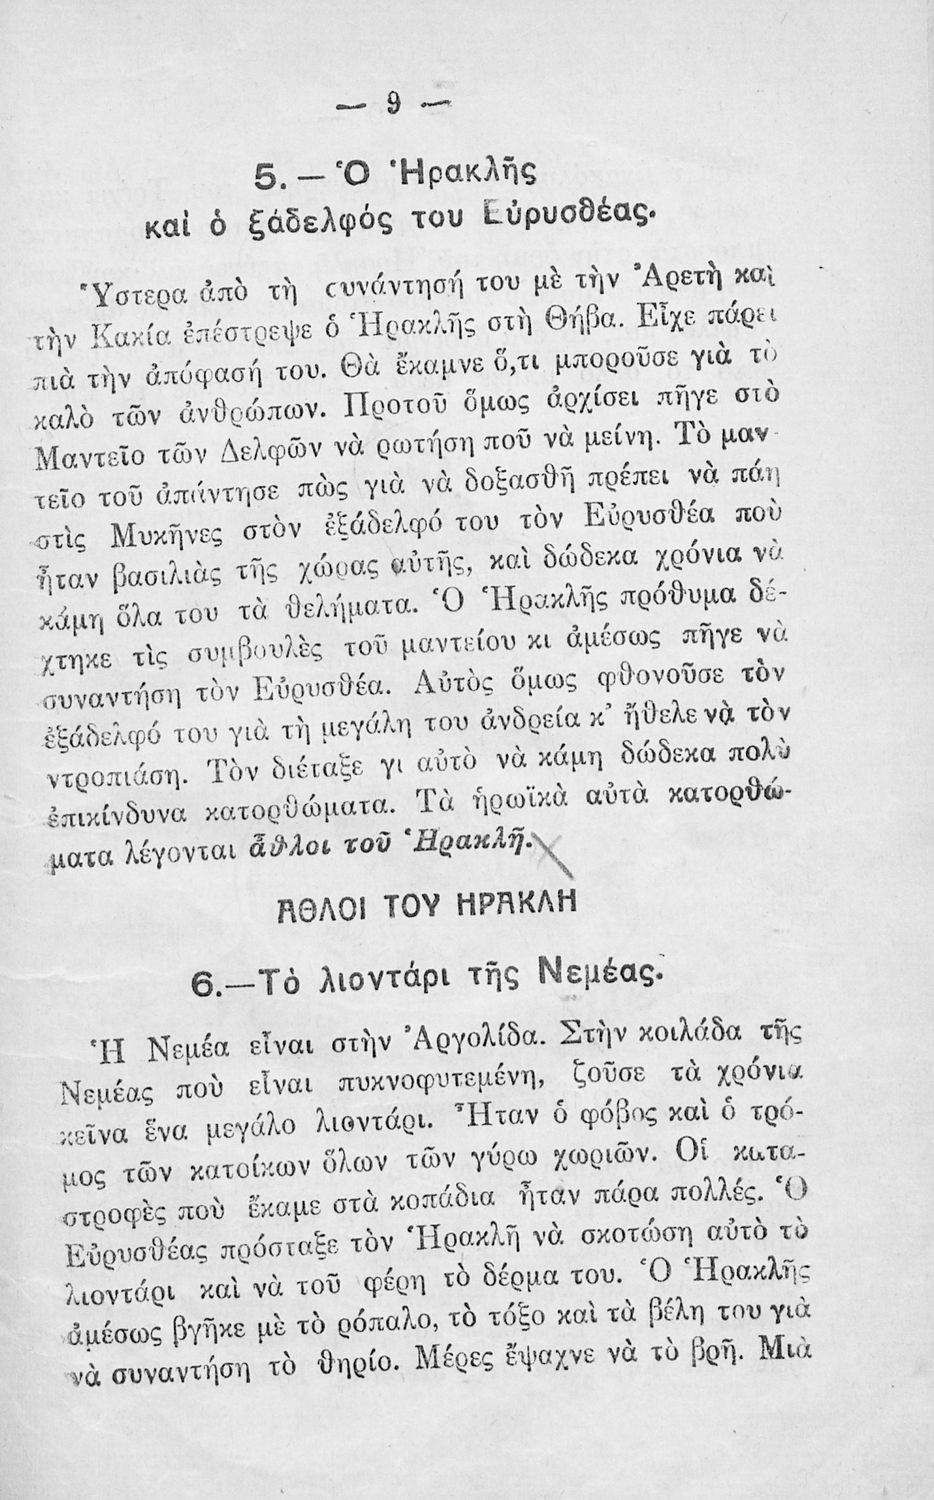 — 9 —
5. — Ὁ Ἡρακλῆς
καὶ ὁ ξάδελφός του Εὐρυσθέας.
Ὕστερα ἀπὸ τὴ συνάντησή του μὲ τὴν Ἀρετὴ καὶ
τὴν Κακία ἐπέστρεψε ὁ Ἡρακλῆς στὴ Θήβα. Εἶχε πάρει
πιὰ τὴν ἀπόφασή του. Θὰ ἔκαμνε ὅ,τι μποροῦσε γιὰ τὸ
καλὸ τῶν ἀνθρώπων. Προτοῦ ὅμως ἀρχίσει πῆγε στὸ
Μαντεῖο τῶν Δελφῶν νὰ ρωτήση ποῦ νὰ μείνη. Τὸ μαν-
τεῖο τοῦ ἀπάντησε πὼς γιὰ νὰ δοξασθῆ πρέπει νὰ πάη
στὶς Μυκῆνες στὸν ἐξάδελφό του τὸν Εὐρυσθέα ποὺ
ἦταν βασιλιὰς τῆς χώρας αὐτῆς, καὶ δώδεκα χρόνια νὰ
κάμη ὅλα του τὰ θελήματα. Ὁ Ἡρακλῆς πρόθυμα δέ-
χτηκε τὶς συμβουλὲς τοῦ μαντείου κι ἀμέσως πῆγε νὰ
συναντήση τὸν Εὐρυσθέα. Αὐτὸς ὅμως φθονοῦσε τὸν
ἐξάδελφό του γιὰ τὴ μεγάλη του ἀνδρεία κ’ ἤθελε νὰ τὸν
ντροπιάση. Τὸν διέταξε γι αὐτὸ νὰ κάμη δώδεκα πολὺ
ἐπικίνδυνα κατορθώματα. Τὰ ἡρωϊκὰ αὐτὰ κατορθώ-
ματα λέγονται ἆθλοι τοῦ Ἡρακλῆ.
ΑΘΛΟΙ ΤΟΥ ΗΡΑΚΛΗ
6.—Τὸ λιοντάρι τῆς Νεμέας.
Ἡ Νεμέα εἶναι στὴν Ἀργολίδα. Στὴν κοιλάδα τῆς
Νεμέας ποὺ εἶναι πυκνοφυτεμένη, ζοῦσε τὰ χρόνια
κεῖνα ἕνα μεγάλο λιοντάρι. Ἦταν ὁ φόβος καὶ ὁ τρό-
μος τῶν κατοίκων ὅλων τῶν γύρω χωριῶν. Οἱ κατα-
στροφὲς ποὺ ἔκαμε στὰ κοπάδια ἦταν πάρα πολλές. Ὁ
Εὐρυσθέας πρόσταξε τὸν Ἡρακλῆ νὰ σκοτώση αὐτὸ τὸ
λιοντάρι καὶ νὰ τοῦ φέρη τὸ δέρμα του. Ὁ Ἡρακλῆς
ἀμέσως βγῆκε μὲ τὸ ρόπαλο, τὸ τόξο καὶ τὰ βέλη του γιὰ
νὰ συναντήση τὸ θηρίο. Μέρες ἔψαχνε νὰ τὸ βρῆ. Μιὰ